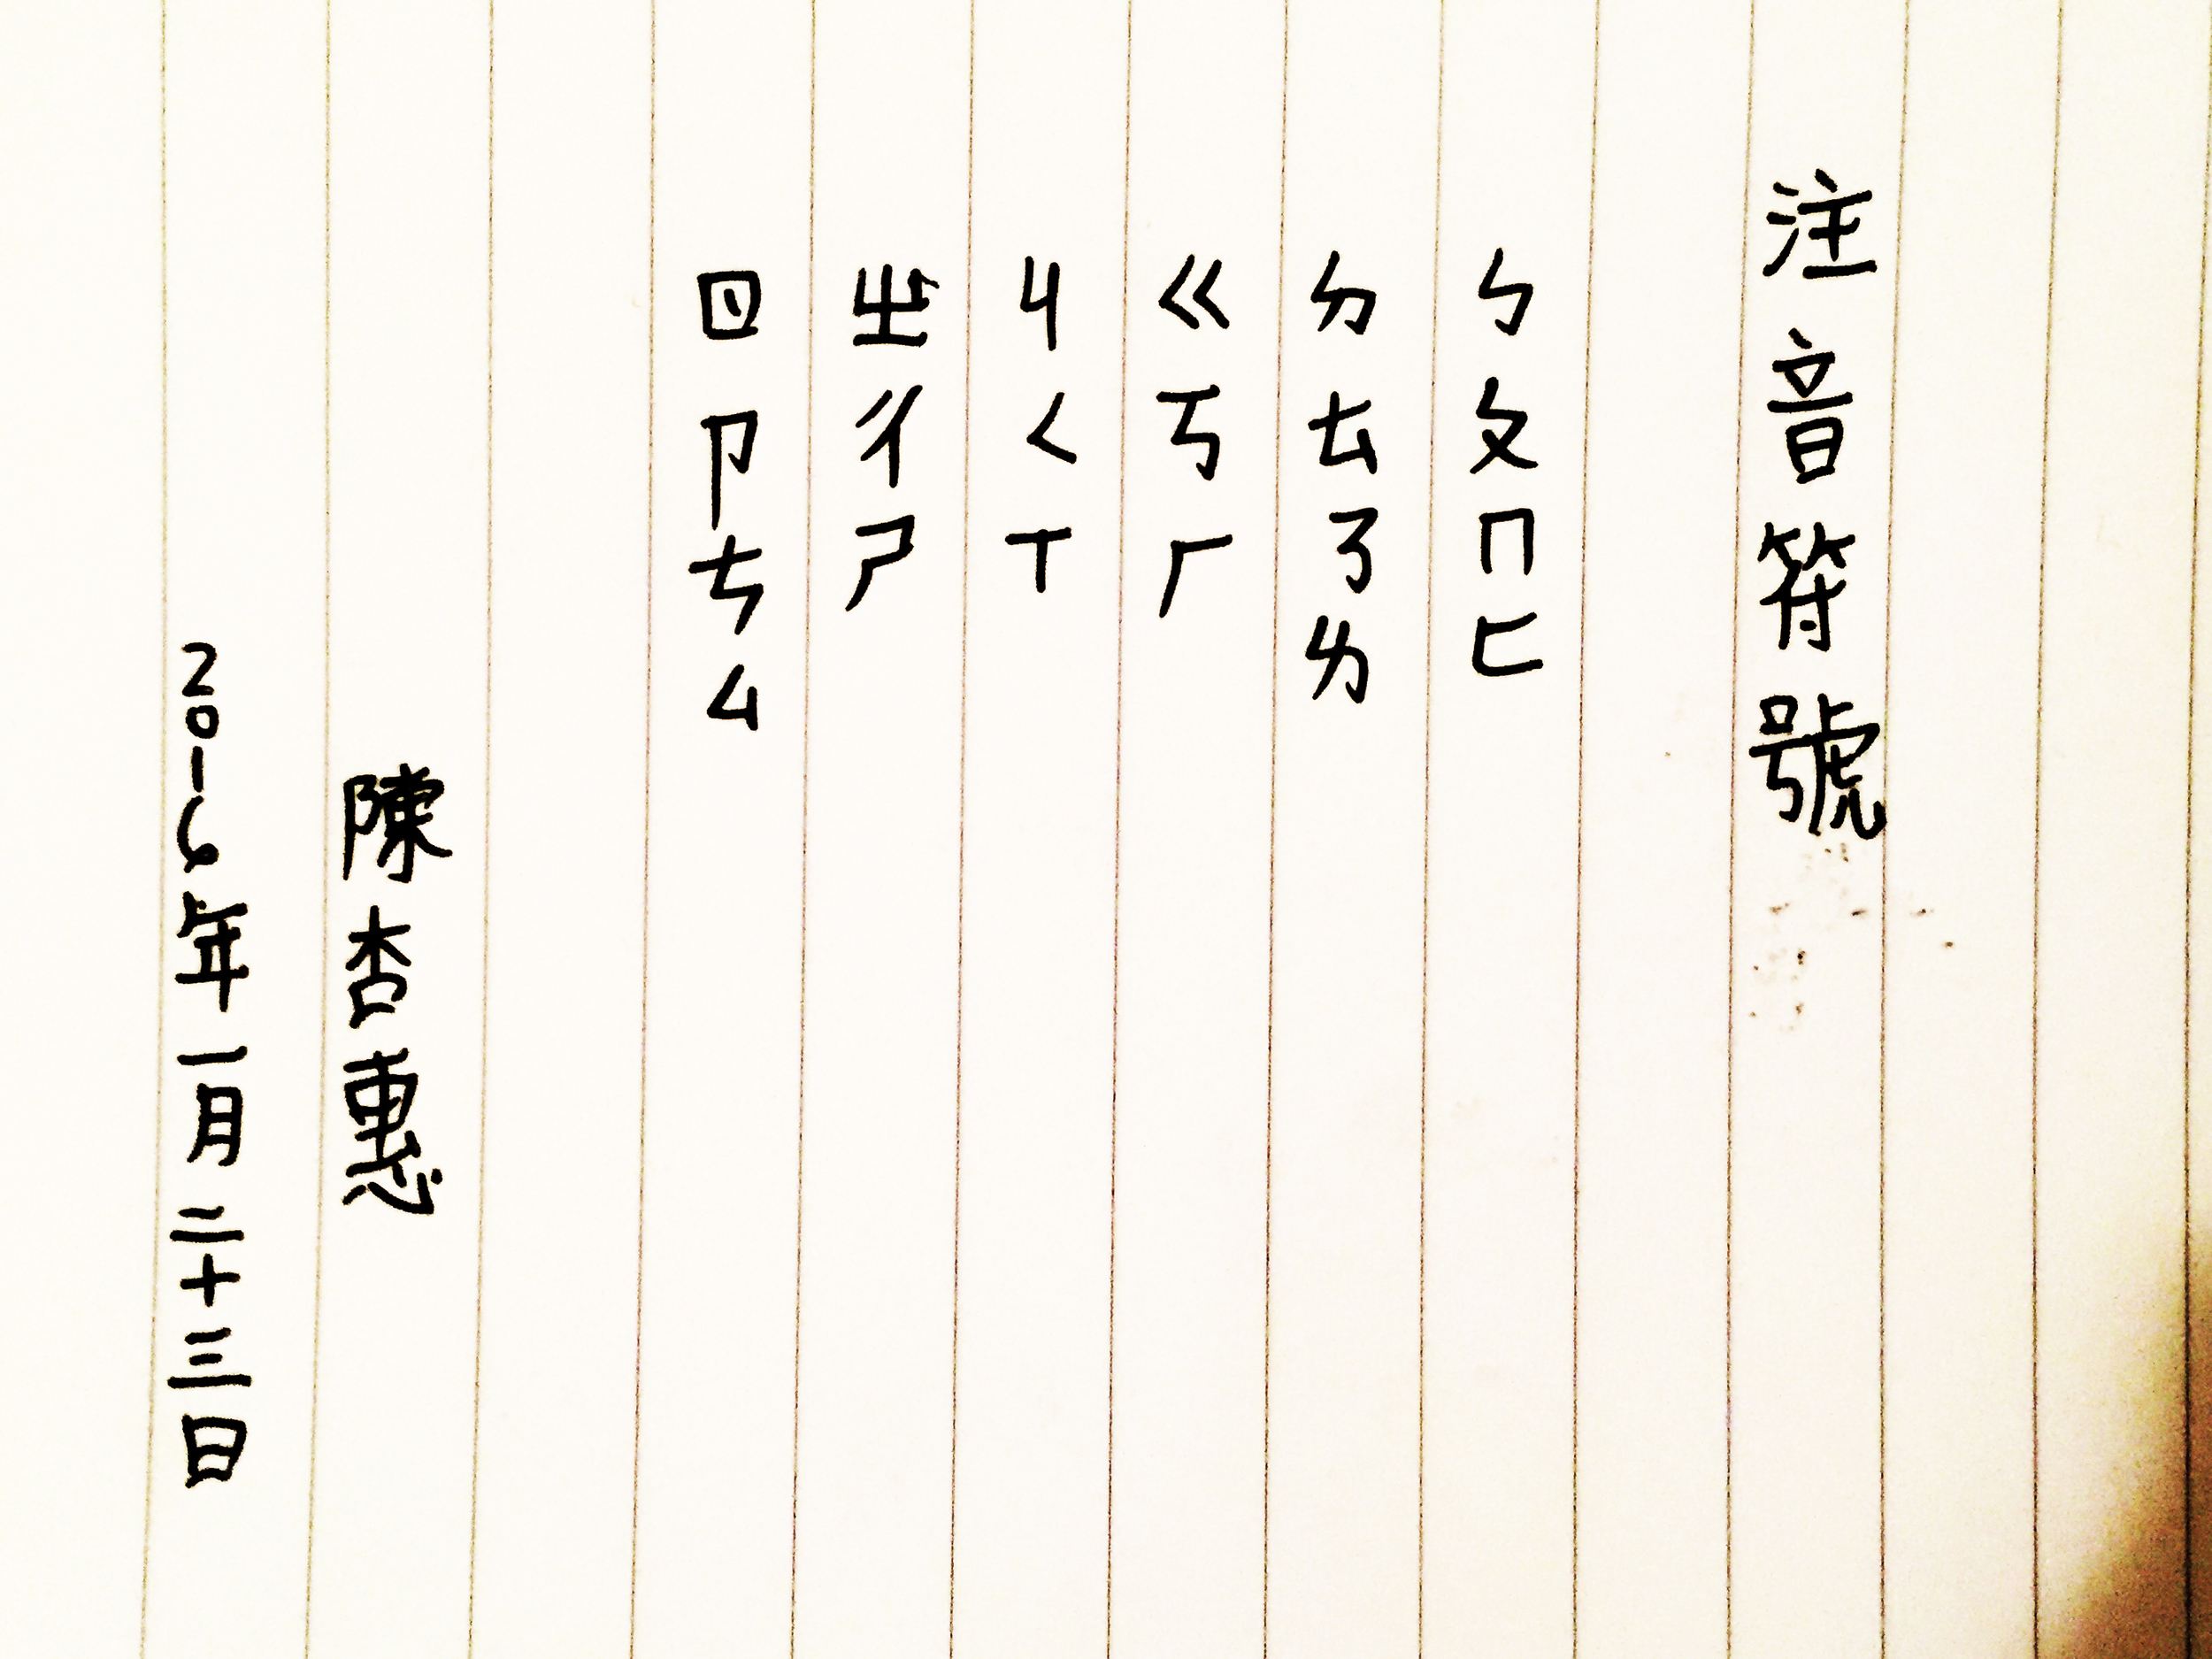 注音符號
ㄅㄆㄇㄈ
ㄉㄊㄋㄌ
ㄍㄎㄏ
ㄐㄑㄒ
ㄓㄔㄕ
ㄖㄗㄘㄙ
陳杏惠
2016年一月二十三日